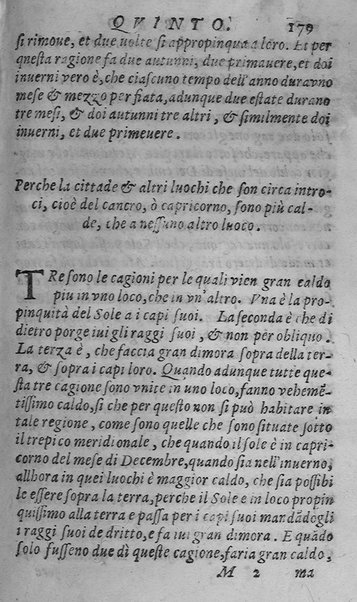 QVINTO. 179
si rimoue, et due uolte si appropinqua a loro. Et per
questa ragione fa due autunni, due primauere, et doi
inuerni vero è, che ciascuno tempo dell'anno durauno
mese & mezzo per fiata, adunque due estate durano
tre mesi, & doi autunni tre altri, & similmente doi
inuerni, et due primeuere.
Perche la cittade & altri luochi che son circa intro-
ci, cioè del cancro, ò capricorno, sono più cal-
de, che a nessuno altro luoco.
TRe sono le cagioni per le quali vien gran caldo
piu in vno loco, che in vn'altro. Vna è la pro-
pinquità del Sole a i capi suoi. La seconda è che di
dietro porge iui gli raggi suoi, & non per obliquo.
La terza è, che faccia gran dimora sopra della ter-
ra, & sopra i capi loro. Quando adunque tutte que-
sta tre cagione sono vnite in uno loco, fanno veheme-
tissimo caldo, si che per questo non si può habitare in
tale regione, come sono quelle che sono situate sotto
il trepico meridionale, che quando il sole è in capri-
corno del mese di Decembre, quando sia nell'inuerno,
allhora in quei luochi è maggior caldo, che sia possibi
le essere sopra la terra, perche il Sole e in loco propin
quissimo alla terra e passa per i capi suoi mandādogli
i raggi suoi de dritto, e fa iui gran dimora. E quādo
solo fusseno due di queste cagione, faria gran caldo,
M 2 ma